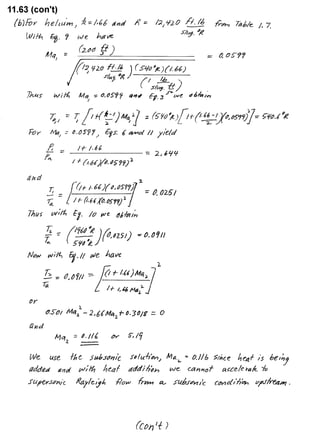 11.63 (con't)
(b) For helium, k = 1.66 and R = 12,420 ft·lb / slug·°R from Table 1.7.
With Eq. 9 we have
Ma1 = (200 ft/s) / √((12,420 ft·lb / slug·°R)(540°R)(1.66) / (1 lb / slug·ft/s²)) = 0.0599
Thus with Ma1 = 0.0599 and Eq. 3 we obtain
T01 = T1 [1 + ((k-1)/2) Ma1²] = (540°R)[1 + ((1.66-1)/2)(0.0599)²] = 540.6°R
For Ma1 = 0.0599, Eqs. 6 and 11 yield
P1/Pa = (1 + 1.66) / (1 + (1.66)(0.0599)²) = 2.644
and
T1/Ta = [(1 + 1.66)(0.0599) / (1 + (1.66)(0.0599)²)]² = 0.0251
Thus with Eq. 10 we obtain
T2/Ta = (1960°R / 540°R)(0.0251) = 0.0911
Now with Eq. 11 we have
T2/Ta = 0.0911 = [(1 + 1.66) Ma2 / (1 + 1.66 Ma2²)]²
or
0.501 Ma2² - 2.66 Ma2 + 0.3018 = 0
and
Ma2 = 0.116 or 5.19
We use the subsonic solution, Ma2 = 0.116 since heat is being
added and with heat addition we cannot accelerate to
supersonic Rayleigh flow from a subsonic condition upstream.
(con't)